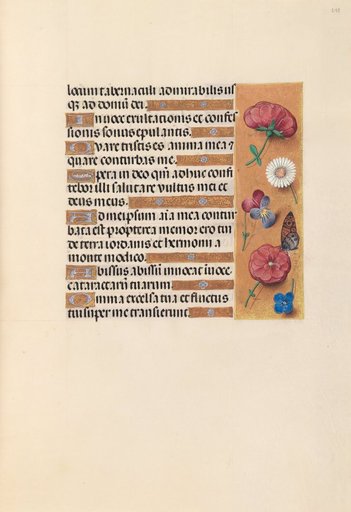 locum tabernaculi admirabilis us
q₃ ad domū dei.
In uoce exultationis et confes
sionis sonus epulantis.
Quare tristis es anima mea ⁊
quare conturbas me.
Spera in deo qm̄ adhuc confi
tebor illi salutare vultus mei et
deus meus.
Ad meipsum aīa mea contur
bata est propterea memor ero tui
de terra iordanis et hermonij a
monte modico.
Abissus abissū inuocat in uoce
cataractarū tuarum.
Omnia excelsa tua et fluctus
tui super me transierunt.